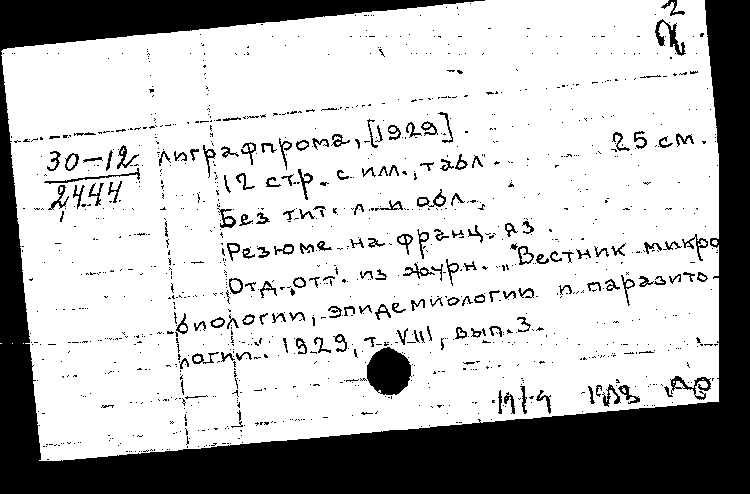 2
30-12
2444
лиграфпрома, [1929].
12 стр. с илл., табл. 25 см.
Без тит. л. и обл.
Резюме на франц. яз.
Отд. отт. из журн. „Вестник микро
биологии, эпидемиологии и паразито-
логии". 1929, т. VIII, вып. 3.